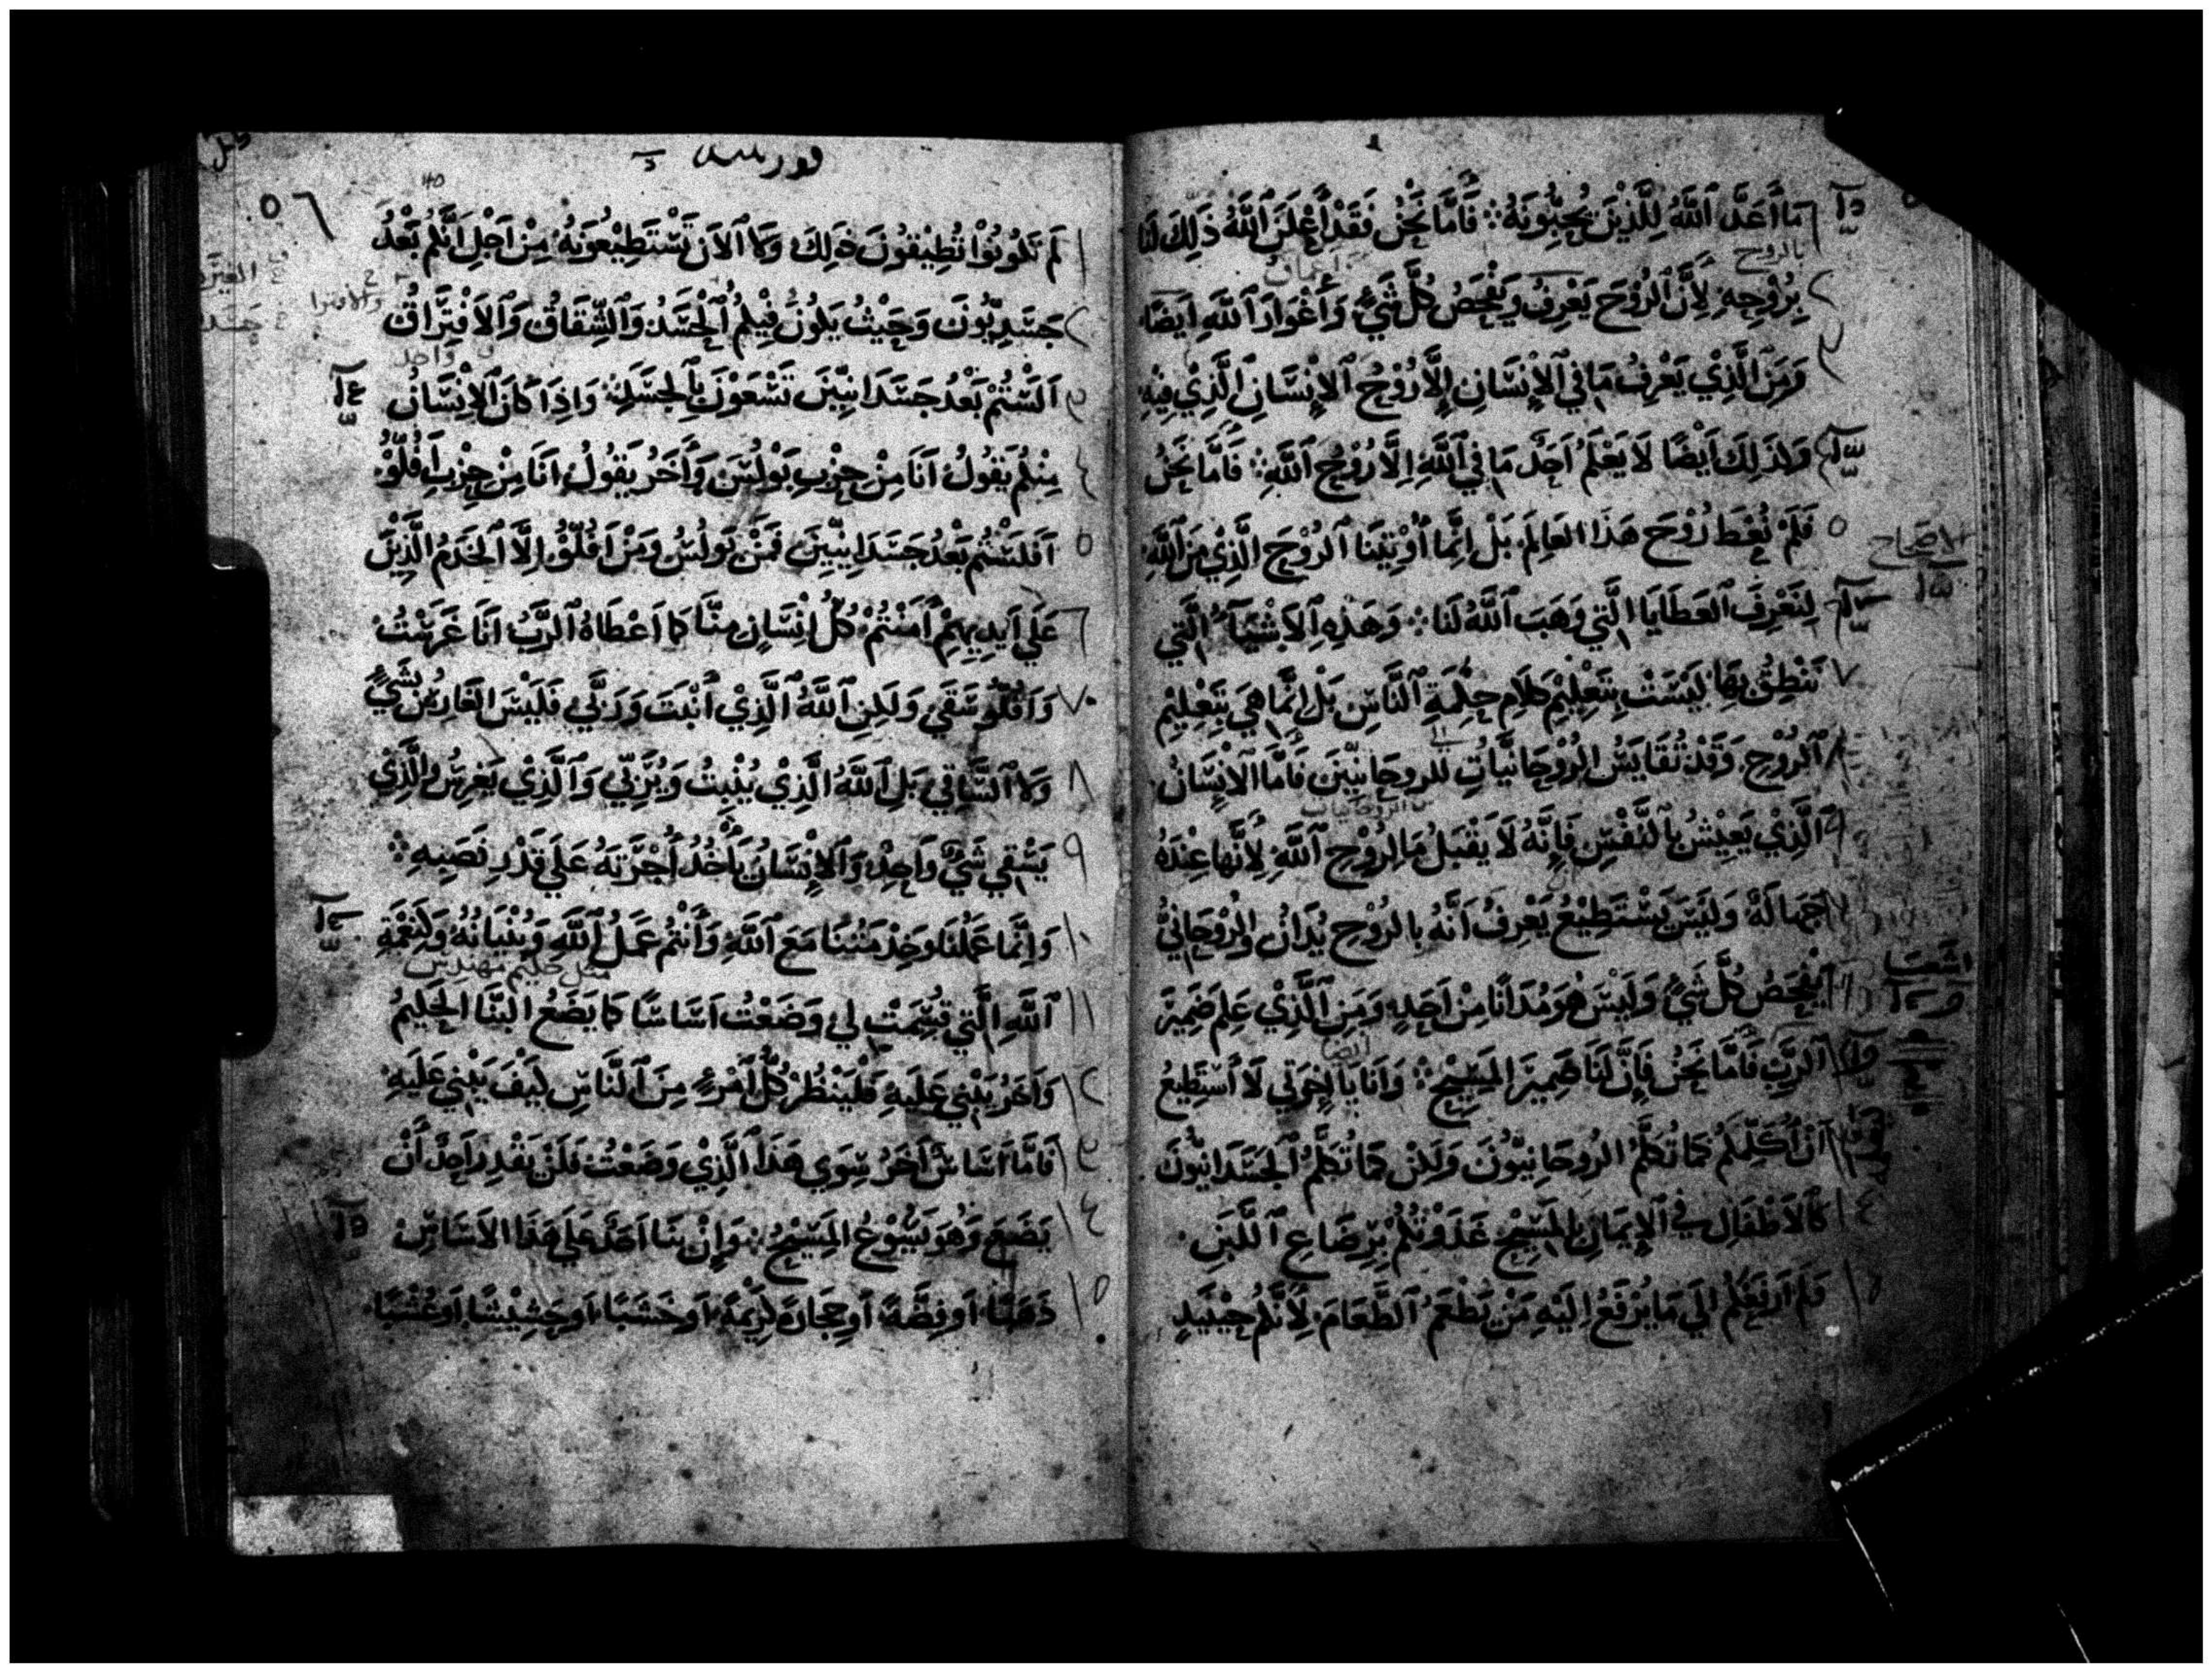 مَا أَعَدَّ ٱللَّهُ لِلَّذِينَ يُحِبُّونَهُ ؞ فَأَمَّا نَحْنُ فَقَدْ أَعْلَنَ ٱللَّهُ ذَلِكَ لَنَا
بالروح
بِرُوحِهِ لِأَنَّ ٱلرُّوْحَ يَعْرِفُ وَيَفْحَصُ كُلَّ شَيْءٍ وَأَغْوَارَ ٱللَّهِ أَيْضًا
وَمَنِ ٱلَّذِي يَعْرِفُ مَا فِي ٱلْإِنْسَانِ إِلَّا رُوْحُ ٱلْإِنْسَانِ ٱلَّذِي فِيْهِ
وَكَذَلِكَ أَيْضًا لَا يَعْلَمُ أَحَدٌ مَا فِي ٱللَّهِ إِلَّا رُوْحُ ٱللَّهِ ؞ فَأَمَّا نَحْنُ
٥ فَلَمْ نُعْطَ رُوْحَ هَذَا العَالَمِ بَلْ إِنَّمَا أُوْتِيْنَا ٱلرُّوْحَ الَّذِيْ مِنَ ٱللَّهِ
الاصحاح
لِنَعْرِفَ ٱلعَطَايَا الَّتِي وَهَبَ ٱللَّهُ لَنَا ؞ وَهَذِهِ ٱلْأَشْيَآءُ الَّتِي
٧ نَنْطِقُ بِهَا لَيْسَتْ بِتَعْلِيْمِ كَلَامِ حِكْمَةِ ٱلنَّاسِ بَلْ إِنَّمَا هِيَ بِتَعْلِيْمِ
٨ ٱلرُّوْحِ وَقَدْ نُقَايِسُ الرُّوْحَانِيَّاتِ لِلرُوحَانِيِّيْنَ فَأَمَّا الإِنْسَانُ
٩ ٱلَّذِيْ يَعِيْشُ بِٱلنَّفْسِ فَإِنَّهُ لَا يَقْبَلُ مَا لِرُوْحِ ٱللَّهِ لِأَنَّهَا عِنْدَهُ
جَهَالَةٌ وَلَيْسَ يَسْتَطِيْعُ يَعْرِفُ أَنَّهُ بِالرُوْحِ يُدَانُ وَالرُّوْحَانِيُّ
يَفْحَصُ كُلَّ شَيْءٍ وَلَيْسَ هُوَ مُدَانًا مِنْ أَحَدٍ وَمَنِ ٱلَّذِيْ عَلِمَ ضَمِيْرَ
ٱلرَبِّ فَأَمَّا نَحْنُ فَإِنَّ لَنَا ضَمِيْرَ المَسِيْحِ ؞ وَأَنَا يَا إِخْوَتِي لَا أَسْتَطِيعُ
أَنْ أُكَلِّمَكُمْ كَمَا تُكَلَّمُ الرُوحَانِيُّوْنَ وَلَكِنْ كَمَا تُكَلَّمُ ٱلجَسَدَانِيُّونَ
١٤ كَالأَطْفَالِ فِي ٱلإِيمَانِ بِالمَسِيْحِ غَذَوْتُكُمْ بِرِضَاعِ ٱللَّبَنِ
١٥ وَلَمْ أَرْفَعْكُمْ إِلَي مَا يُرْفَعُ إِلَيْهِ مَنْ يُطْعَمُ ٱلطَّعَامَ لِأَنَّكُمْ حِيْنَئِذٍ
٥٦
40
١ لَمْ تَكُونُوْا تُطِيْقُونَ ذَلِكَ وَلَا ٱلْآنَ تَسْتَطِيْعُونَهُ مِنْ أَجْلِ أَنَّكُمْ بَعْدُ
٢ جَسَدِيُّونَ وَحَيْثُ يَكُونُ فِيْكُمُ ٱلْحَسَدُ وَٱلشِّقَاقُ وَٱلاَفْتِرَاقُ
٣ أَلَسْتُمْ بَعْدُ جَسَدَانِيِّيْنَ تَسْعَوْنَ بِٱلجَسَدِ ؞ وَإِذَا كَانَ ٱلْإِنْسَانُ
٤ مِنْكُمْ يَقُولُ أَنَا مِنْ حِزْبِ بَوْلُسَ وَأَخَرُ يَقُولُ أَنَا مِنْ حِزْبِ أَفُلُّوْ
٥ أَفَلَسْتُمْ بَعْدُ جَسَدَانِيِّيْنَ فَمَنْ بَوْلُسُ وَمَنْ أَفُلُّوْ إِلَّا ٱلخَدَمُ الَّذِيْنَ
٦ عَلَي أَيْدِيهِمْ أَمَنْتُمْ كُلُّ إِنْسَانٍ مِنَّا كَمَا أَعْطَاهُ ٱلرَّبُّ أَنَا غَرَسْتُ
٧ وَأَفُلُّوْ سَقَي وَلَكِنِ ٱللَّهُ ٱلَّذِيْ أَنْبَتَ وَرَبَّي فَلَيْسَ الغَارِسُ شَيْءٌ
٨ وَلَا ٱلسَّاقِي بَلِ ٱللَّهُ الَّذِيْ يُنْبِتُ وَيُرَبِّي وَٱلَّذِيْ يَغْرِسُ وَالَّذِي
٩ يَسْقِي شَيْءٌ وَاحِدٌ وَٱلإِنْسَانُ يَأْخُذُ أُجْرَتَهُ عَلَي قَدْرِ نَصَبِهِ ؞
١٠ وَإِنَّمَا عَمَلُنَا وَخِدْمَتُنَا مَعَ ٱللَّهِ وَأَنْتُمْ عَمَلُ ٱللَّهِ وَبُنْيَانُهُ وَكَنِعْمَةِ
١١ ٱللَّهِ الَّتِي قُسِمَتْ لِي وَضَعْتُ أَسَاسًا كَمَا يَضَعُ البَنَّا الحَكِيمُ
١٢ وَأَخَرُ يَبْنِي عَلَيهِ فَلْيَنْظُرْ كُلُّ ٱمْرِءٍ مِنَ ٱلنَّاسِ كَيْفَ يَبْنِي عَلَيهِ
فَأَمَّا أَسَاسٌ أَخَرُ سِوَي هَذَا ٱلَّذِيْ وَضَعْتُ فَلَنْ يَقْدِرَ أَحَدٌ أَنْ
١٤ يَضَعَ وَهُوَ يَسُوْعُ المَسِيْحُ ؞ وَإِنْ بَنَا أَحَدٌ عَلَي هَذَا الأَسَاسِ
١٥ ذَهَبًا أَو فِضَّةً أَو حِجَارَةً كَرِيْمَةً أَو خَشَبًا أَو حَشِيْشًا أَو عُشْبًا